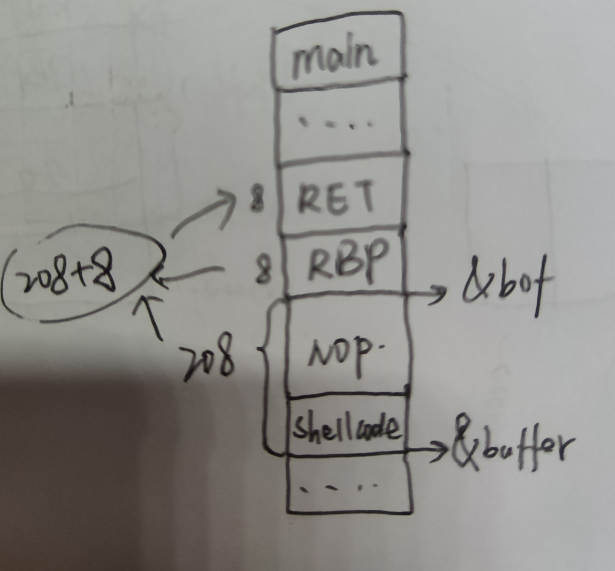 main
....
8 RET
208+8
8 RBP
&bof
208
NOP.
shellcode
&buffer
....